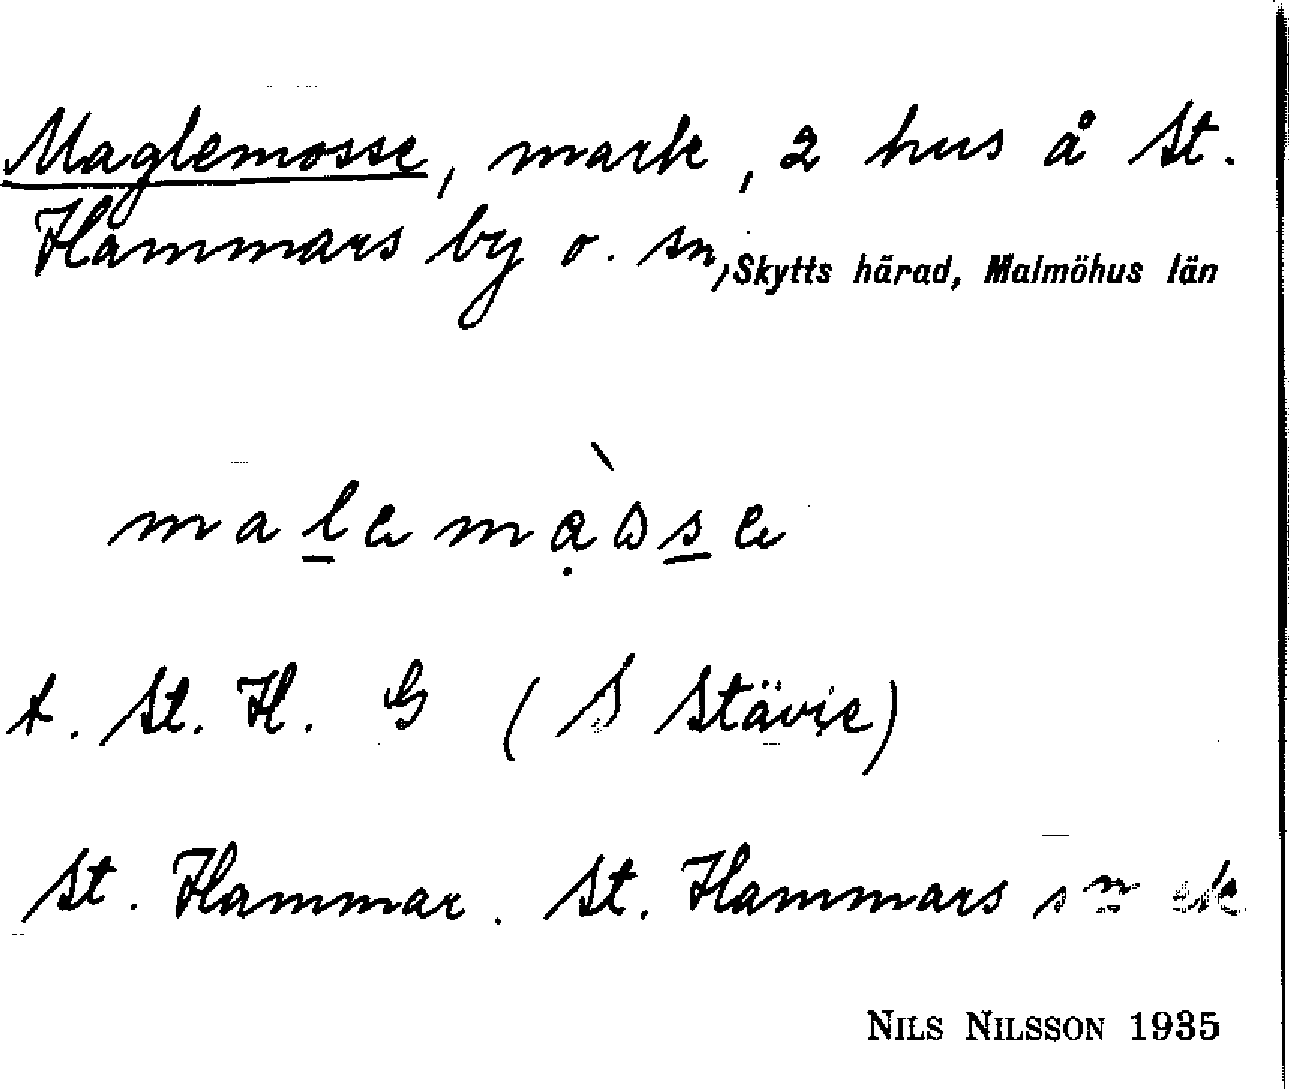 Maglemosse, mark, 2 hus å St.
Hammars by o. sn, Skytts härad, Malmöhus län
t. St. H. G (S Stävie)
St. Hammar. St. Hammars sn ek
NILS NILSSON 1935